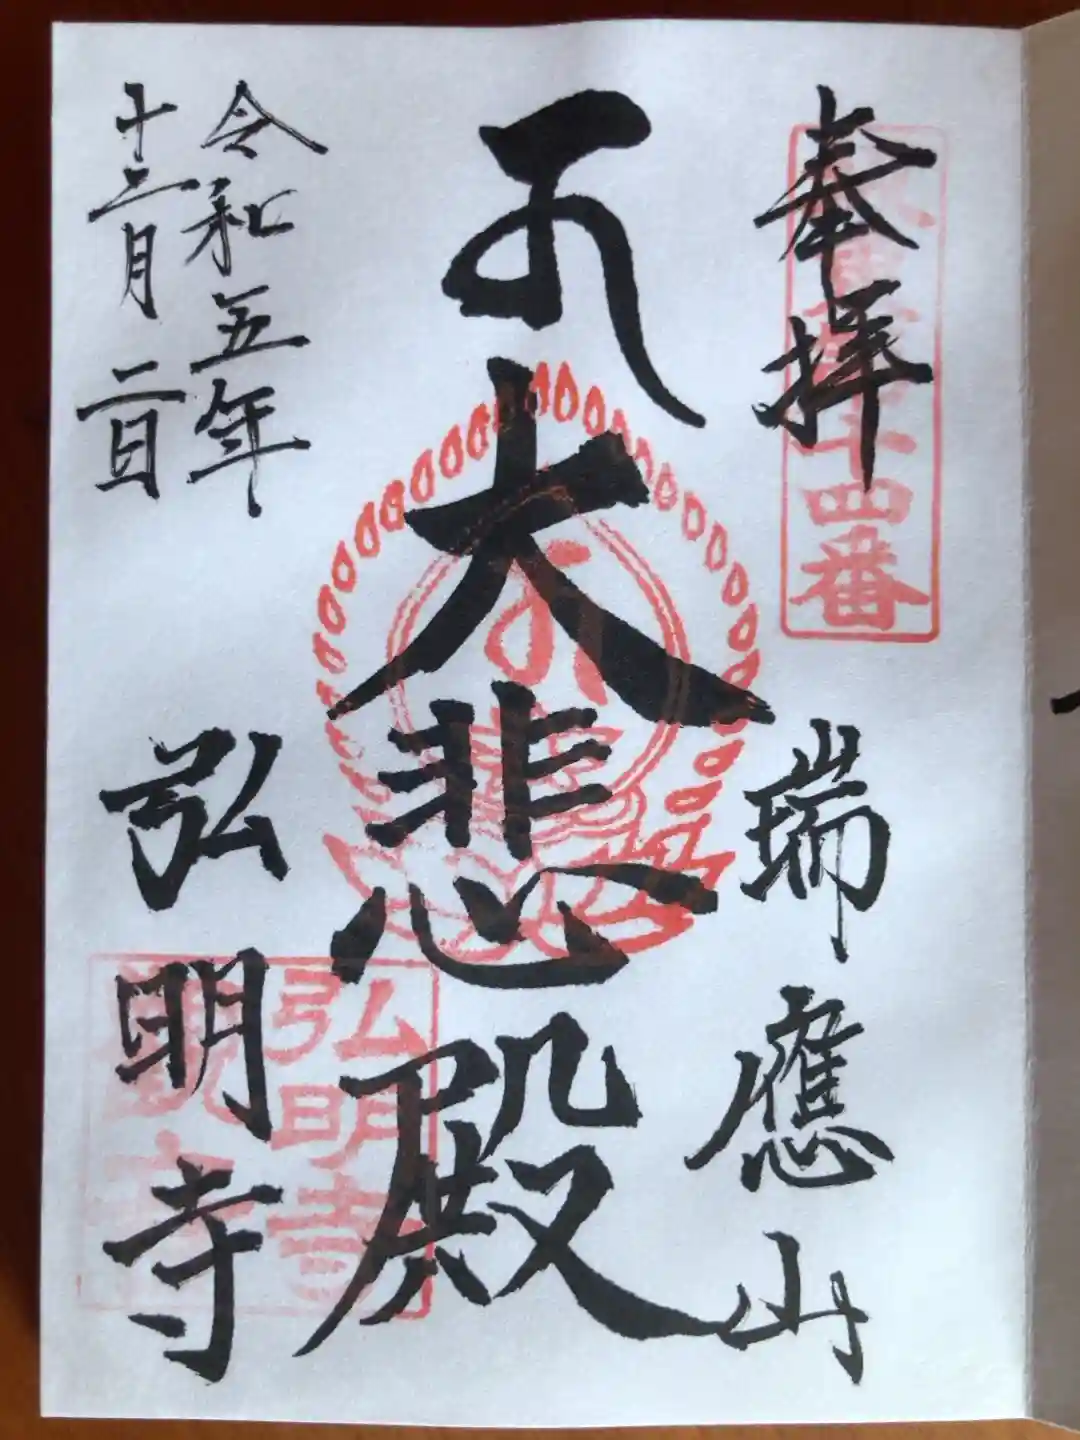 奉拝
十四番
瑞應山
大悲殿
令和五年
十二月二日
弘明寺
弘明寺